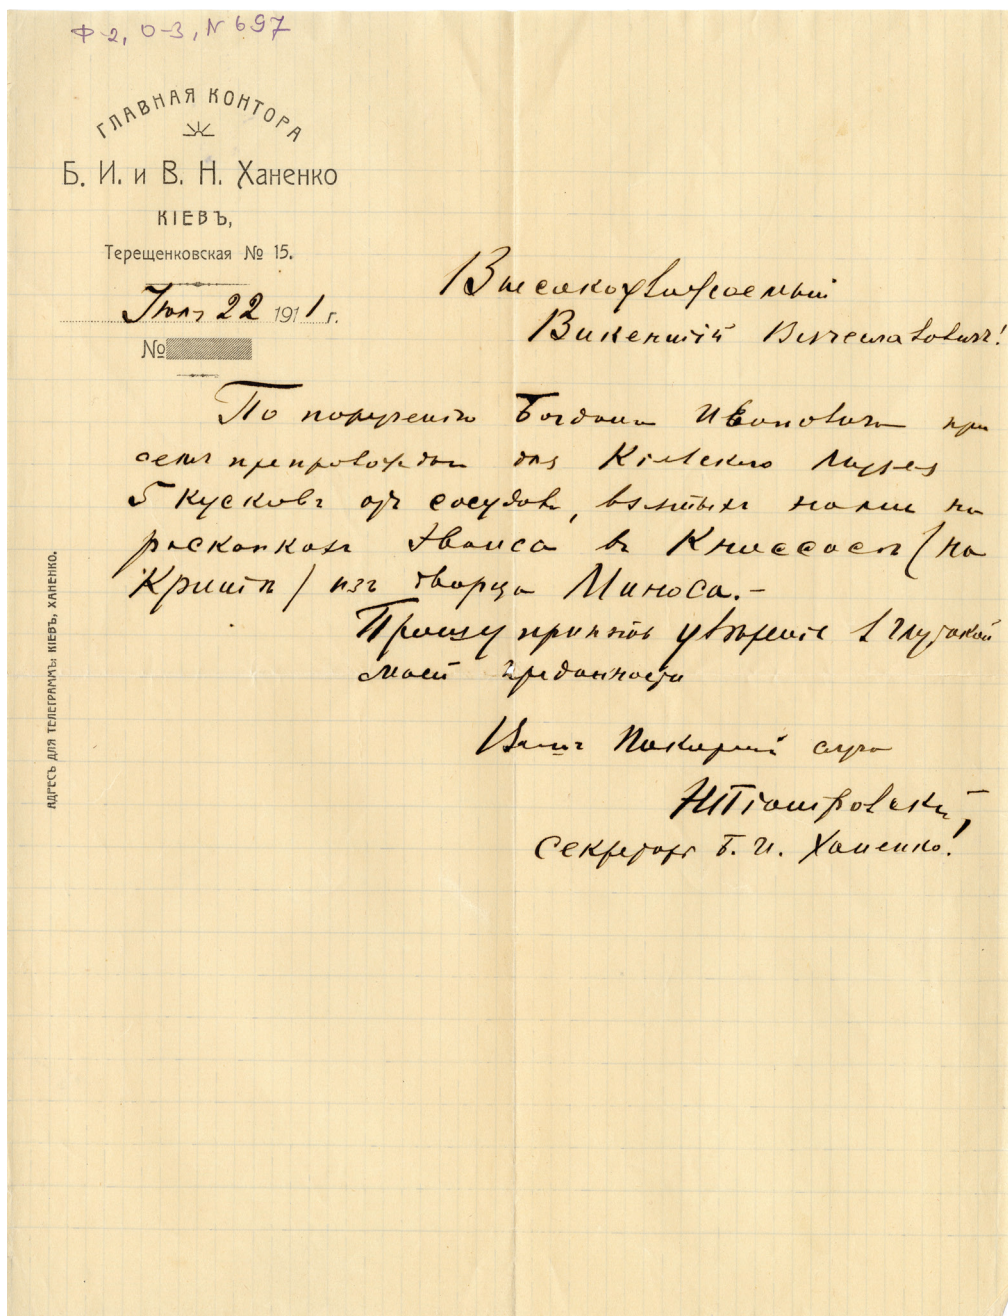 Ф-2, О-3, N 697
ГЛАВНАЯ КОНТОРА
Б. И. и В. Н. Ханенко
КІЕВЪ,
Терещенковская № 15.
22 1911 г.
№
Высокоуважаемый
Викентій Вячеславовичъ!
По порученію Богдана Ивановича при
семъ препровождаю для Кіевскаго Музея
5 кусковъ отъ сосудовъ, взятыхъ нами на
раскопкахъ Эванса въ Кноссосѣ (на
Критѣ) изъ дворца Миноса.-
Прошу принять увѣреніе въ глубокой
моей преданности
Вашъ покорный слуга
НПіотровскій,
секретарь Б. И. Ханенко!
АДРЕСЪ ДЛЯ ТЕЛЕГРАММЪ КІЕВЪ, ХАНЕНКО.